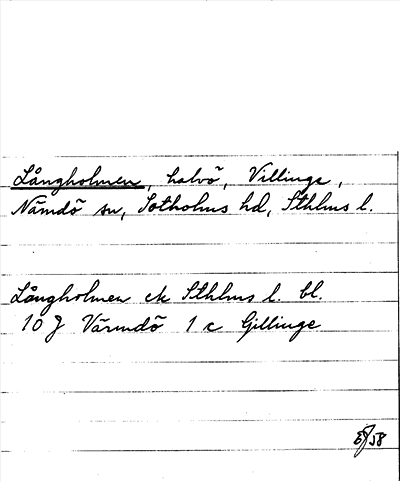 Långholmen, halvö, Villinge,
Nämdö sn, Sotholms hd, Sthlms l.
Långholmen ek Sthlms l. bl.
10 J Värmdö 1 c Gillinge
58